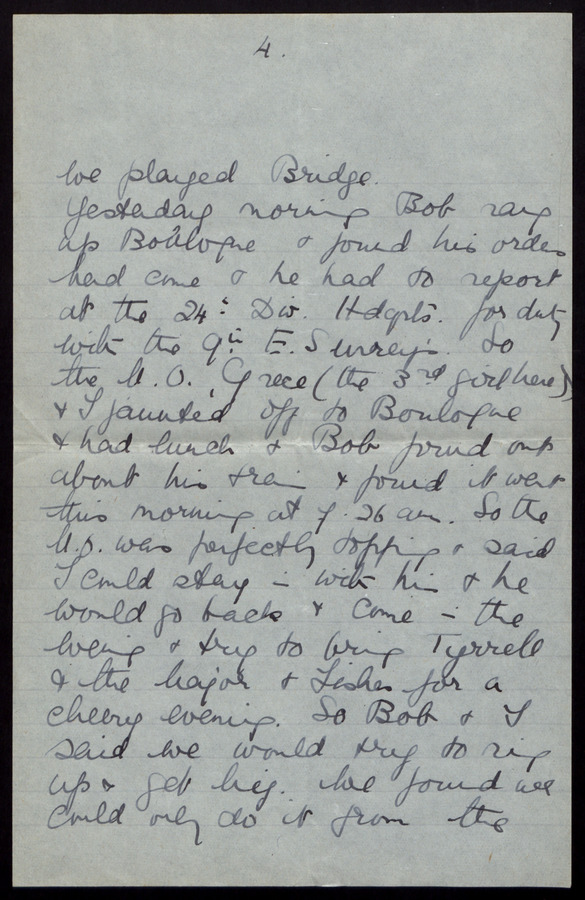 4.
We played Bridge.
Yesterday morning Bob rang
up Boulogne & found his orders
had come & he had to report
at the 24th Div. Hdqrts. for duty
with the 9th E. Surreys. So
the M.O., Grece (the 3rd girl here)
& I jaunted off to Boulogne
& had lunch & Bob found out
about his train & found it went
this morning at 7.26 am. So the
M.O. was perfectly topping & said
I could stay in with him & he
would go back & come in the
evening & try to bring Tyrrell
& the Major & Fisher for a
cheery evening. So Bob & I
said we would try to ring
up & get  We found we
could only do it from the